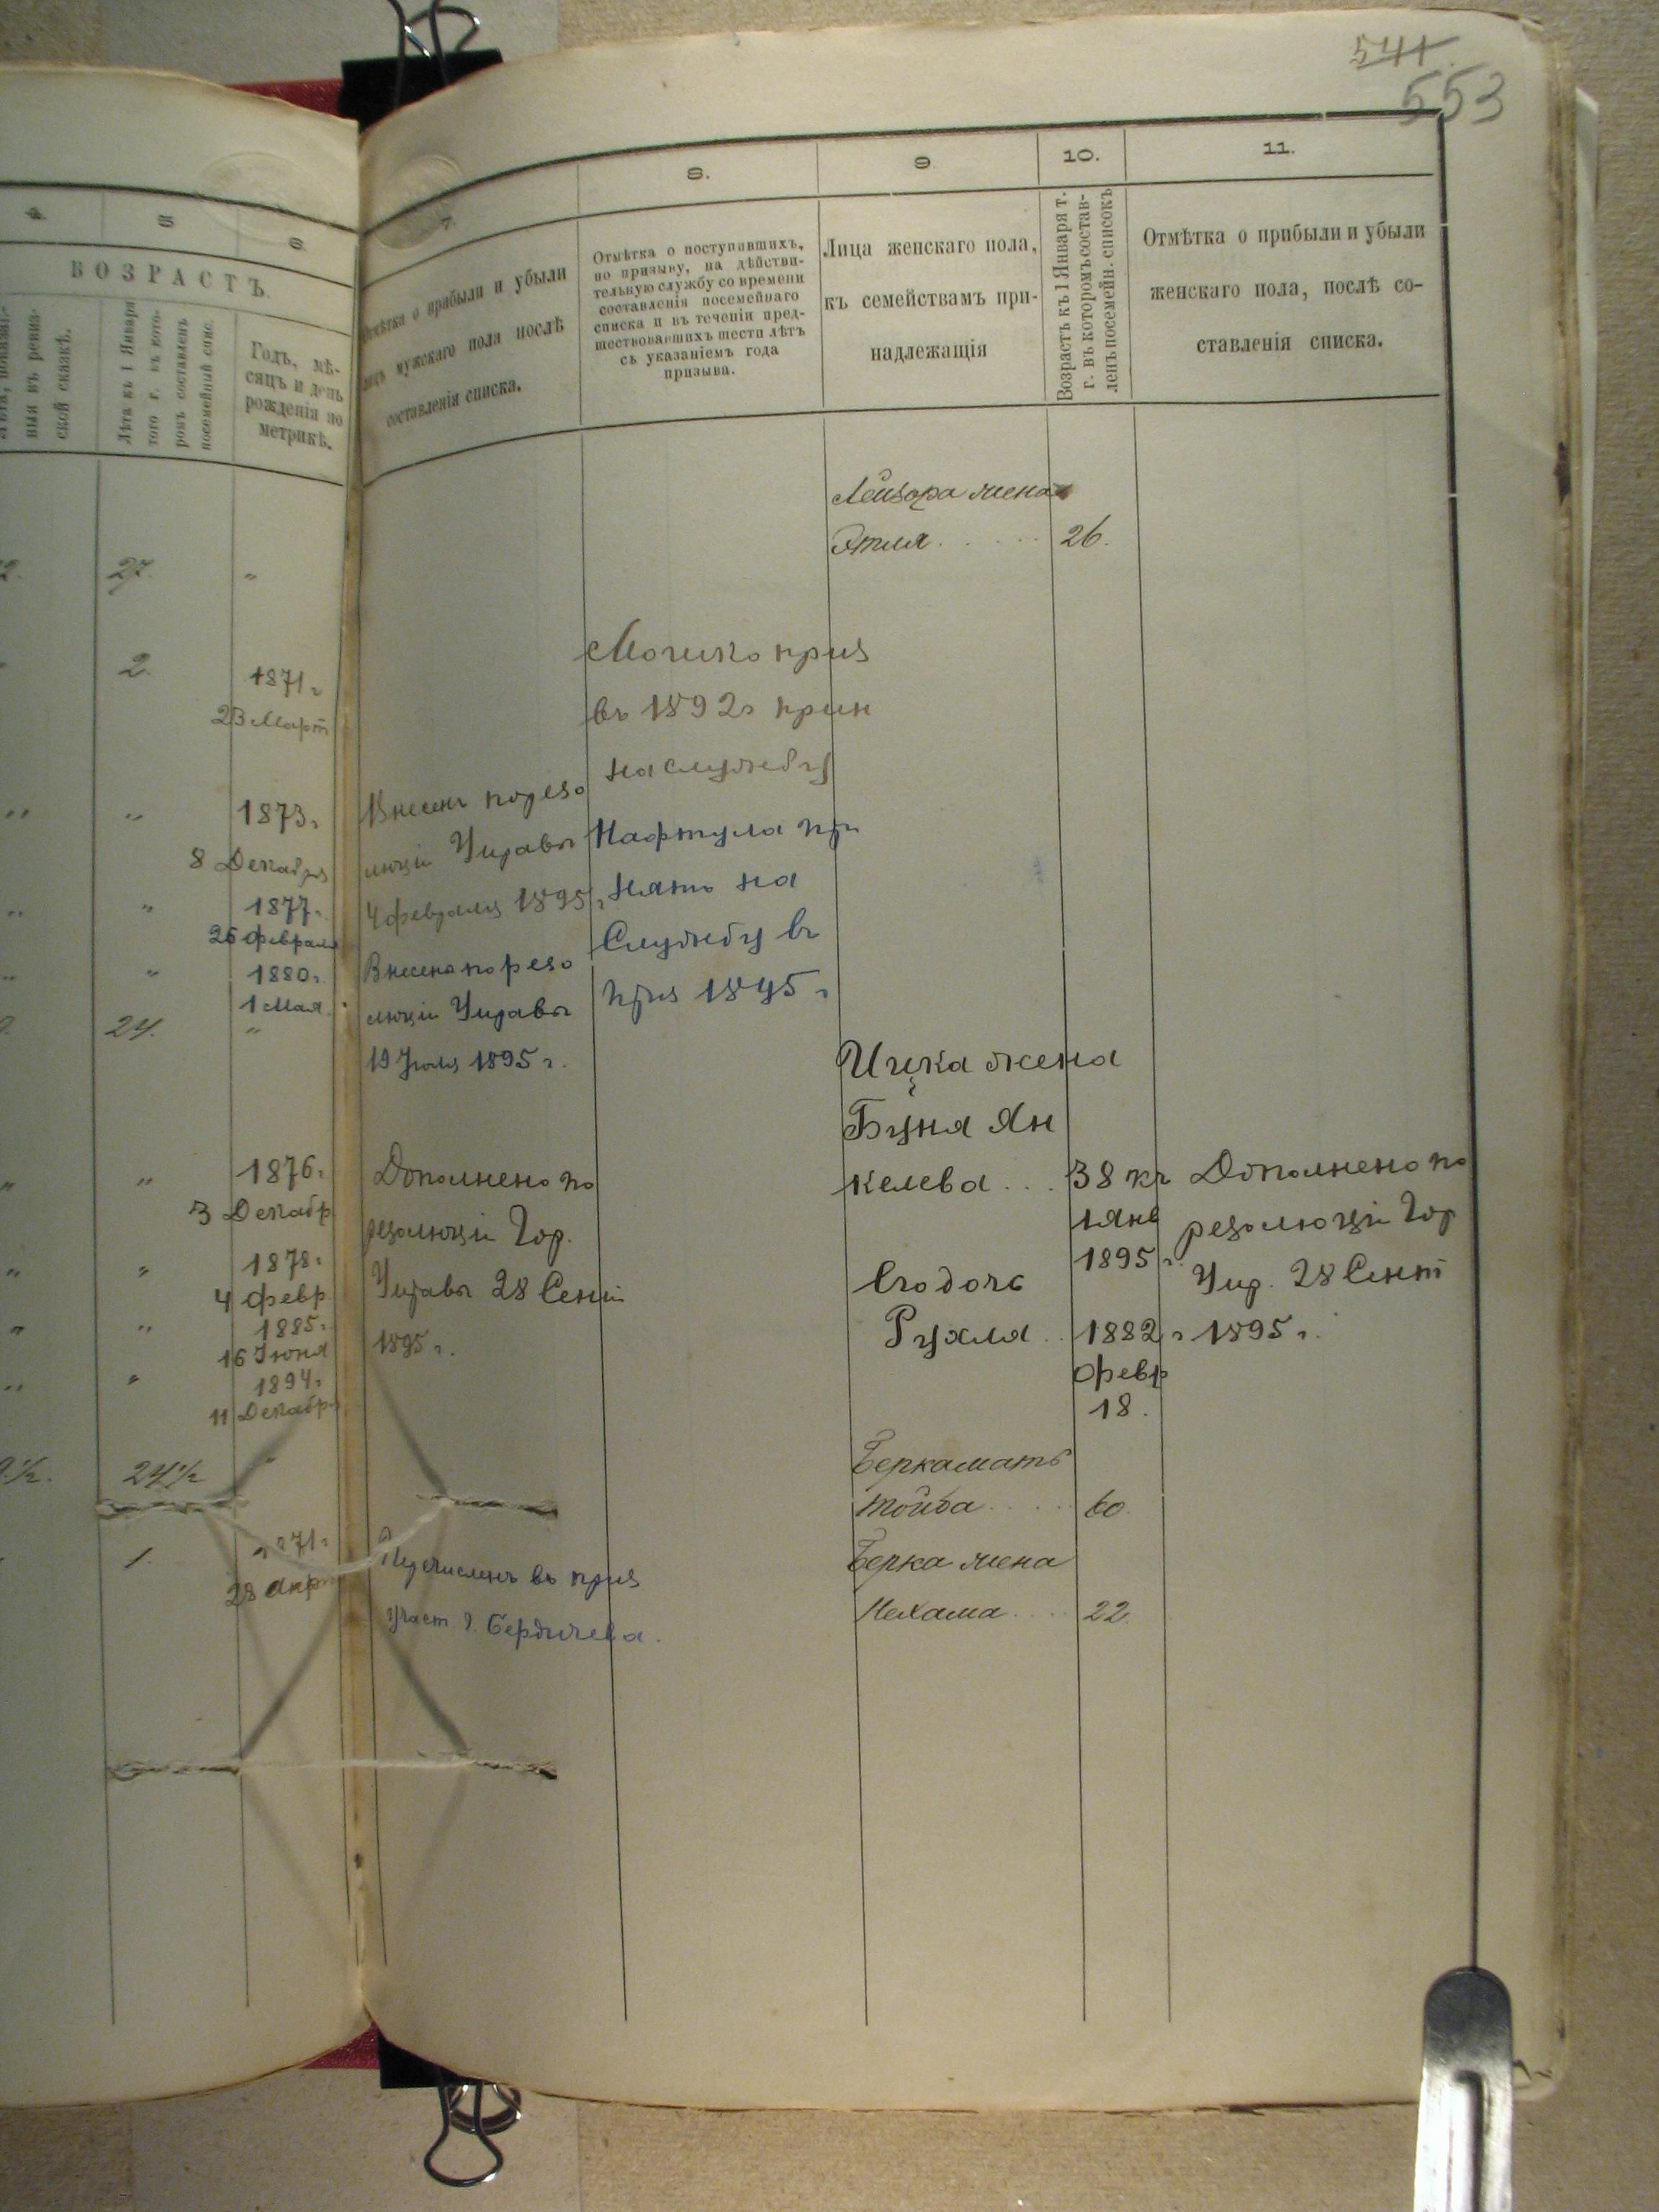 541
553
4.
5
6.
7.
8.
9
10.
11.
ВОЗРАСТЪ
ныя въ ревиз-
ской сказкѣ.
Лѣта къ 1 Января
того г. въ кото-
ромъ составленъ
посемейный спис.
Годъ, мѣ-
сяцъ и день
рожденія по
метрикѣ.
Отмѣтка о прибыли и убыли
лицъ мужскаго пола послѣ
составленія списка.
Отмѣтка о поступившихъ,
по призыву, на дѣйстви-
тельную службу со времени
составленія посемейнаго
списка и въ теченіи пред-
шествовавшихъ шести лѣтъ
съ указаніемъ года
призыва.
Лица женскаго пола,
къ семействамъ при-
надлежащія
Возрастъ къ 1 Января т.
г. въ которомъ состав-
ленъ посемейн. списокъ
Отмѣтка о прибыли и убыли
женскаго пола, послѣ со-
ставленія списка.
27. "
2. 1871 г
23 Март
" " 1873 г
8 Декабря
" " 1877 г.
26 Февраля
" " 1880 г.
1 Мая
24. "
" " 1876 г
3 Декабр
" " 1878 г
4 Февр
" " 1885 г
16 Іюня
" " 1894 г
11 Декабр
24 1/2 "
1. 71 г
28 Апр
Внесенъ по резо
люціи Управы
4 февраля 1895 г
Внесена по резо
люціи Управы
19 Іюля 1895 г.
Дополнено по
резолюціи Гор.
Управы 28 Сент
1895 г.
Причисленъ въ приз
участ. г. Бердичева.
Мошко приз
въ 1892 г прин
на службу
Нафтула при
нятъ на
Службу въ
приз 1895 г
Лейзора жена
Этля . . . . . 26.
Ицка жена
Буня Ян
келева . . . 38 къ
1 Янв
1895 г.
Его дочь
Рухля . . 1882 г
Февр
18.
Берка мать
Тойба . . . . . 60.
Берка жена
Нехама . . . . 22.
Дополнено по
резолюціи Гор
Упр. 28 Сент
1895 г.